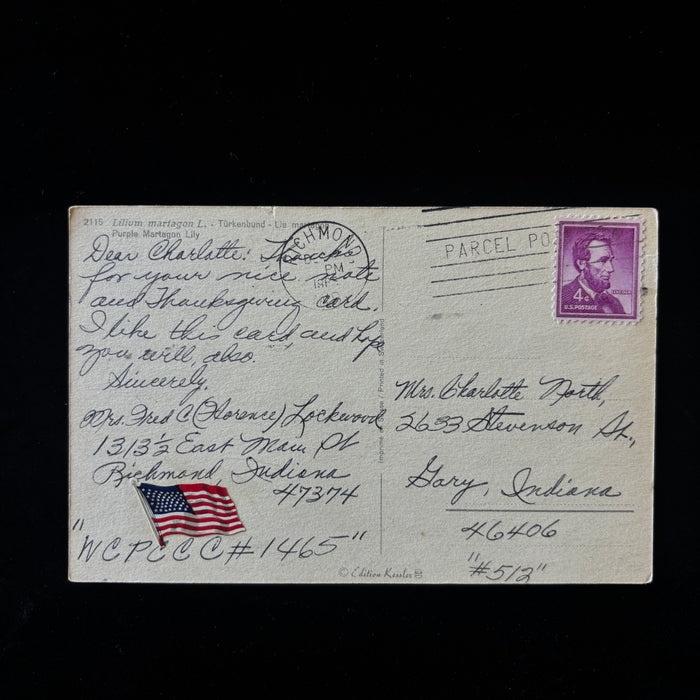 2115 Lilium martagon L. - Türkenbund - Lis
Purple Martagon Lily
Dear Charlotte: Thanks
for your nice note
and Thanksgiving card.
I like this card, and hope
you will, also.
Sincerely,
Mrs. Fred C (Florence) Lockwood
1313½ East Main St
Richmond, Indiana
47374
"WCPCCC #1465"
CHMOND,
PM
PARCEL PO
4¢
U.S. POSTAGE
LINCOLN
Printed in Switzerland
Mrs. Charlotte North,
2633 Stevenson St.,
Gary, Indiana
46406
"#512"
© Edition Kessler